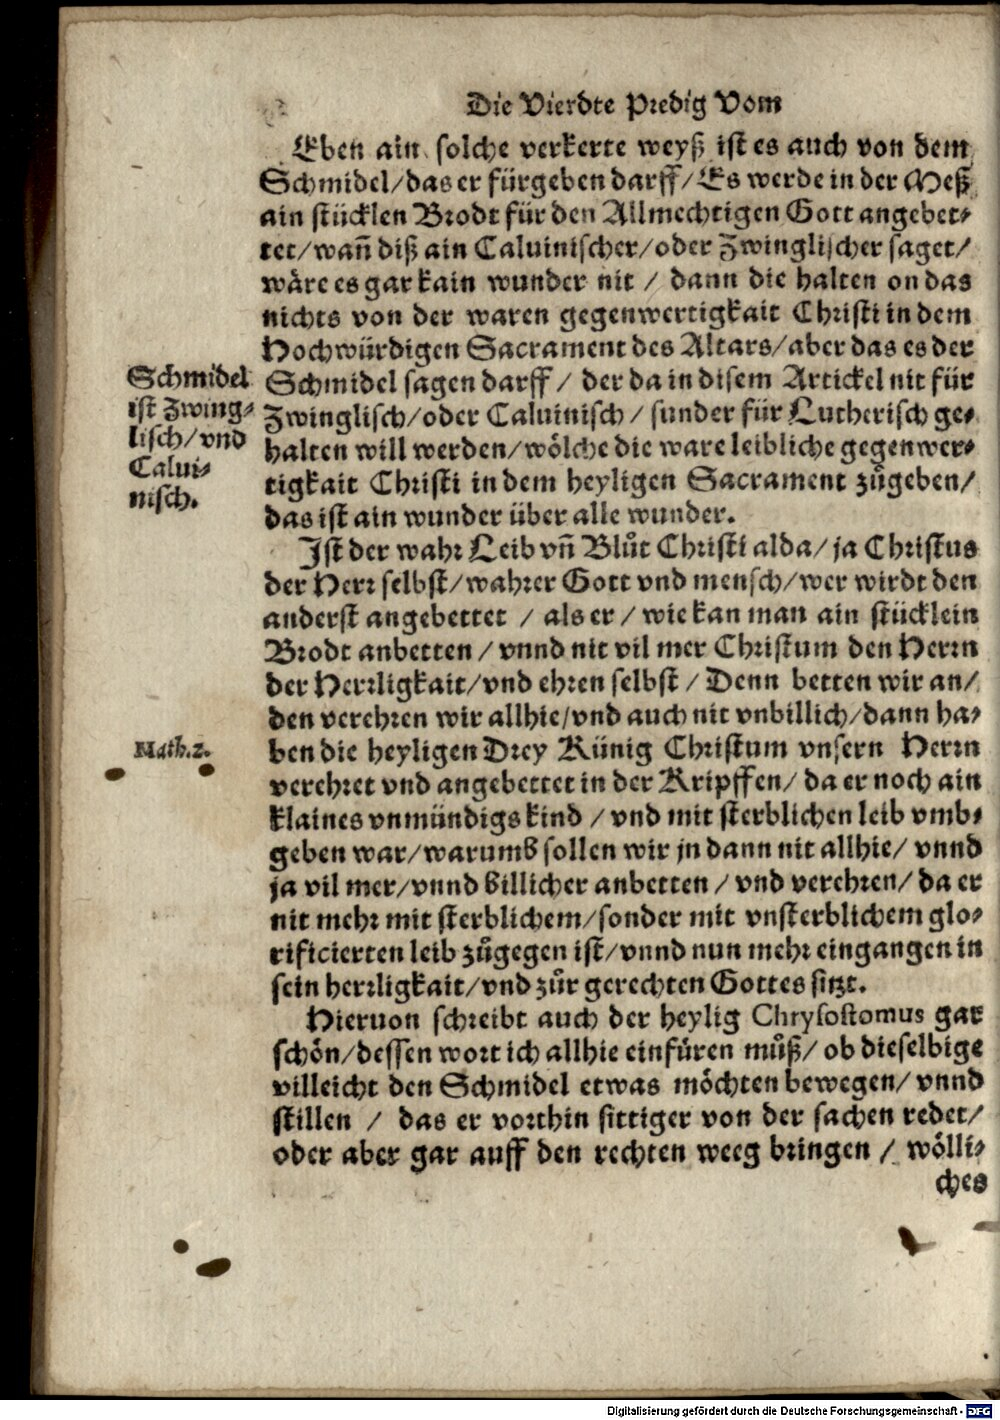 Die Vierdte Predig Vom
Eben ain solche verkerte weyß ist es auch von dem
Schmidel/das er fürgeben darff/Es werde in der Meß
ain stücklen Brodt für den Allmechtigen Gott angebet-
tet/wañ diß ain Caluinischer/oder Zwinglischer saget/
wäre es gar kain wunder nit / dann die halten on das
nichts von der waren gegenwertigkait Christi in dem
Hochwürdigen Sacrament des Altars/aber das es der
Schmidel sagen darff / der da in disem Artickel nit für
Zwinglisch/oder Caluinisch / sunder für Lutherisch ge-
halten will werden/wölche die ware leibliche gegenwer-
tigkait Christi in dem heyligen Sacrament zůgeben/
das ist ain wunder über alle wunder.
Schmidel
ist Zwing-
lisch/vnd
Calui-
nisch.
Ist der wahr Leib vñ Blůt Christi alda/ja Christus
der Herr selbst/wahrer Gott vnd mensch/wer wirdt den
anderst angebettet / als er / wie kan man ain stücklein
Brodt anbetten / vnnd nit vil mer Christum den Herrn
der Herrligkait/vnd ehren selbst / Denn betten wir an/
den verehren wir allhie/vnd auch nit vnbillich/dann ha-
ben die heyligen Drey Künig Christum vnsern Herrn
verehret vnd angebettet in der Kripffen/ da er noch ain
klaines vnmündigs kind / vnd mit sterblichen leib vmb-
geben war/warumb sollen wir jn dann nit allhie/ vnnd
ja vil mer/vnnd billicher anbetten / vnd verehren/ da er
nit mehr mit sterblichem/sonder mit vnsterblichem glo-
rificierten leib zůgegen ist/vnnd nun mehr eingangen in
sein herrligkait/vnd zůr gerechten Gottes sitzt.
Math.2.
Hieruon schreibt auch der heylig Chrysostomus gar
schön/dessen wort ich allhie einfüren můß/ ob dieselbige
villeicht den Schmidel etwas möchten bewegen/ vnnd
stillen / das er vorthin sittiger von der sachen redet/
oder aber gar auff den rechten weeg bringen / wölli-
ches
Digitalisierung gefördert durch die Deutsche Forschungsgemeinschaft - DFG